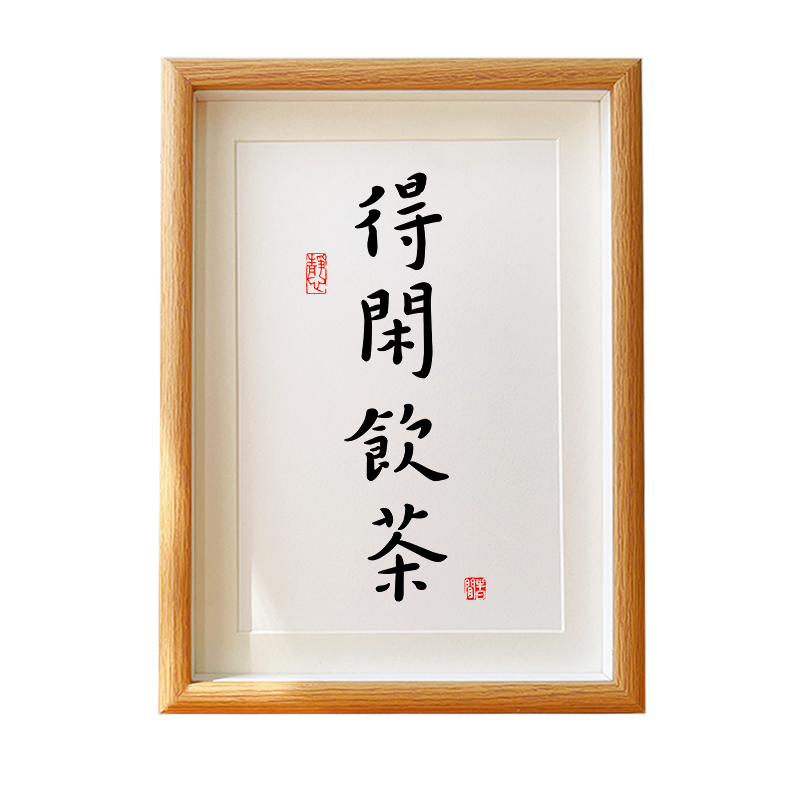 得閑飲茶
靜心